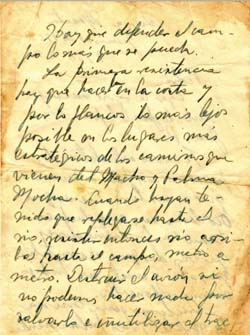 Hay que defender el cam-
po lo más que se pueda.
La primera resistencia
hay que hacerla en la costa y
por los flancos lo más lejos
posible en los lugares más
estratégicos de los caminos que
vienen del Macho y Palma
Mocha. Cuando hayan te-
nido que replegarse hasta el
río, resistir entonces río arri-
ba hasta el campo, metro a
metro. Destruir el avión si
no podemos hacer nada por
salvarlo e inutilizar el